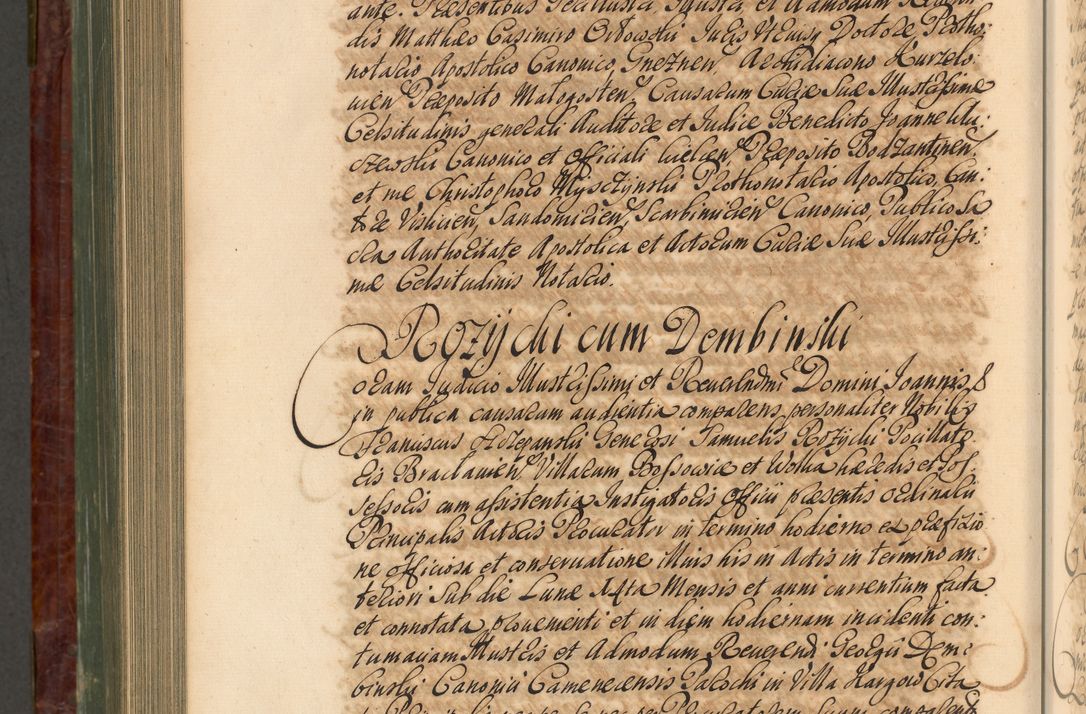 ante. Præsentibus Perillustri Illustri et Admodum Reveren:
dis Matthæo Casimiro Orlowski Juris Utriusq Doctore, Protho:
notario Apostolico Canonico Gneznen, Archidiacono Kurzelo:
vien Præposito Malogosten, Causarum Curiæ Suæ Illustrissimæ
Celsitudinis generali Auditore et Judice Benedicto Joanne
szewski Canonico et Officiali Kielcen, Præposito Bodzantinen
et me Christophoro Myszczynski Prothonotario Apostolico, Can:
tore Vislicien, Sandomirien Scarbimirien Canonico, Publico Sa
cra Authoritate Apostolica et Actorum Curiæ Suæ Illustrissi:
mæ Celsitudinis Notario.
Rozycki cum Dembinski
Coram Judicio Illustrissimi et Reverendmi Domini Joannis, &
in publica causarum audientia comparens personaliter Nobilis
Franciscus Szczepanski Generosi Samuelis Rozycki Pocillato
ris Braclavien, Villarum Bossowice et Wolka hæredis et Pos:
sessoris cum assistentia Instigatoris Officii præsentis ordinarii
Principalis Actoris Procurator in termino hodierno ex præfixio
ne officiosa et conservatione Iuris his in Actis in termino an:
teriori Sub die Lunæ Mensis et anni currentium facta
et connotata provenienti et in diem hodiernam incidenti con:
tumaciam Illustris et Admodum Reverendi Georgii Dem:
binski Canonici Camenecensis Parochi in Villa Kargow Cita